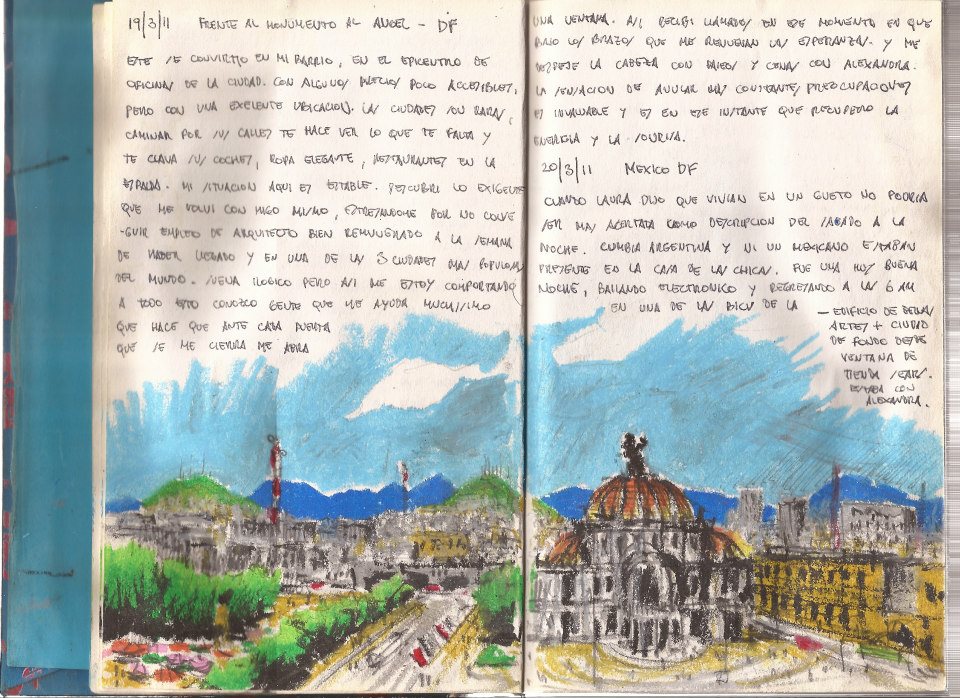 19/3/11 FRENTE AL MONUMENTO AL ANGEL - DF
ESTE SE CONVIRTIO EN MI BARRIO, EN EL EPICENTRO DE
OFICINAS DE LA CIUDAD. CON ALGUNOS PRECIOS POCO ACCESIBLES,
PERO CON UNA EXELENTE UBICACION. LAS CIUDADES SON RARAS,
CAMINAR POR SUS CALLES TE HACE VER LO QUE TE FALTA Y
TE CLAVA SUS COCHES, ROPA ELEGANTE, RESTAURANTES EN LA
ESPALDA. MI SITUACION AQUI ES ESTABLE. DESCUBRI LO EXIGENTE
QUE ME VOLVI CON MIGO MISMO, ESTRESANDOME POR NO CONSE
-GUIR EMPLEO DE ARQUITECTO BIEN REMUNERADO A LA SEMANA
DE HABER LLEGADO Y EN UNA DE LAS 3 CIUDADES MAS POPULOSAS
DEL MUNDO. SUENA ILOGICO PERO ASI ME ESTOY COMPORTANDO
A TODO ESTO CONOZCO GENTE QUE ME AYUDA MUCHISSIMO
QUE HACE QUE ANTE CADA PUERTA
QUE SE ME CIERRA ME ABRA
UNA VENTANA. ASI RECIBI LLAMADOS EN ESE MOMENTO EN QUE
BAJO LOS BRAZOS QUE ME RENUEVAN LAS ESPERANZAS. Y ME
DESPEJE LA CABEZA CON PASEOS Y CENAS CON ALEXANDRA.
LA SENSACION DE ANULAR MIS CONSTANTES PREOCUPACIONES
ES INVALUABLE Y ES EN ESE INSTANTE QUE RECUPERO LA
ENERGIA Y LA SONRISA.
20/3/11 MEXICO DF
CUANDO LAURA DIJO QUE VIVIAN EN UN GUETO NO PODRIA
SER MAS ACERTADA COMO DESCRIPCION DEL SABADO A LA
NOCHE. CUMBIA ARGENTINA Y NI UN MEXICANO ESTABAN
PRESENTE EN LA CASA DE LAS CHICAS. FUE UNA MUY BUENA
NOCHE, BAILANDO ELECTRONICO Y REGRESANDO A LAS 6 AM
EN UNA DE LAS BICIS DE LA
- EDIFICIO DE BELLAS
ARTES + CIUDAD
DE FONDO DESDE
VENTANA DE
TIENDA SEARS.
ESTABA CON
ALEXANDRA.